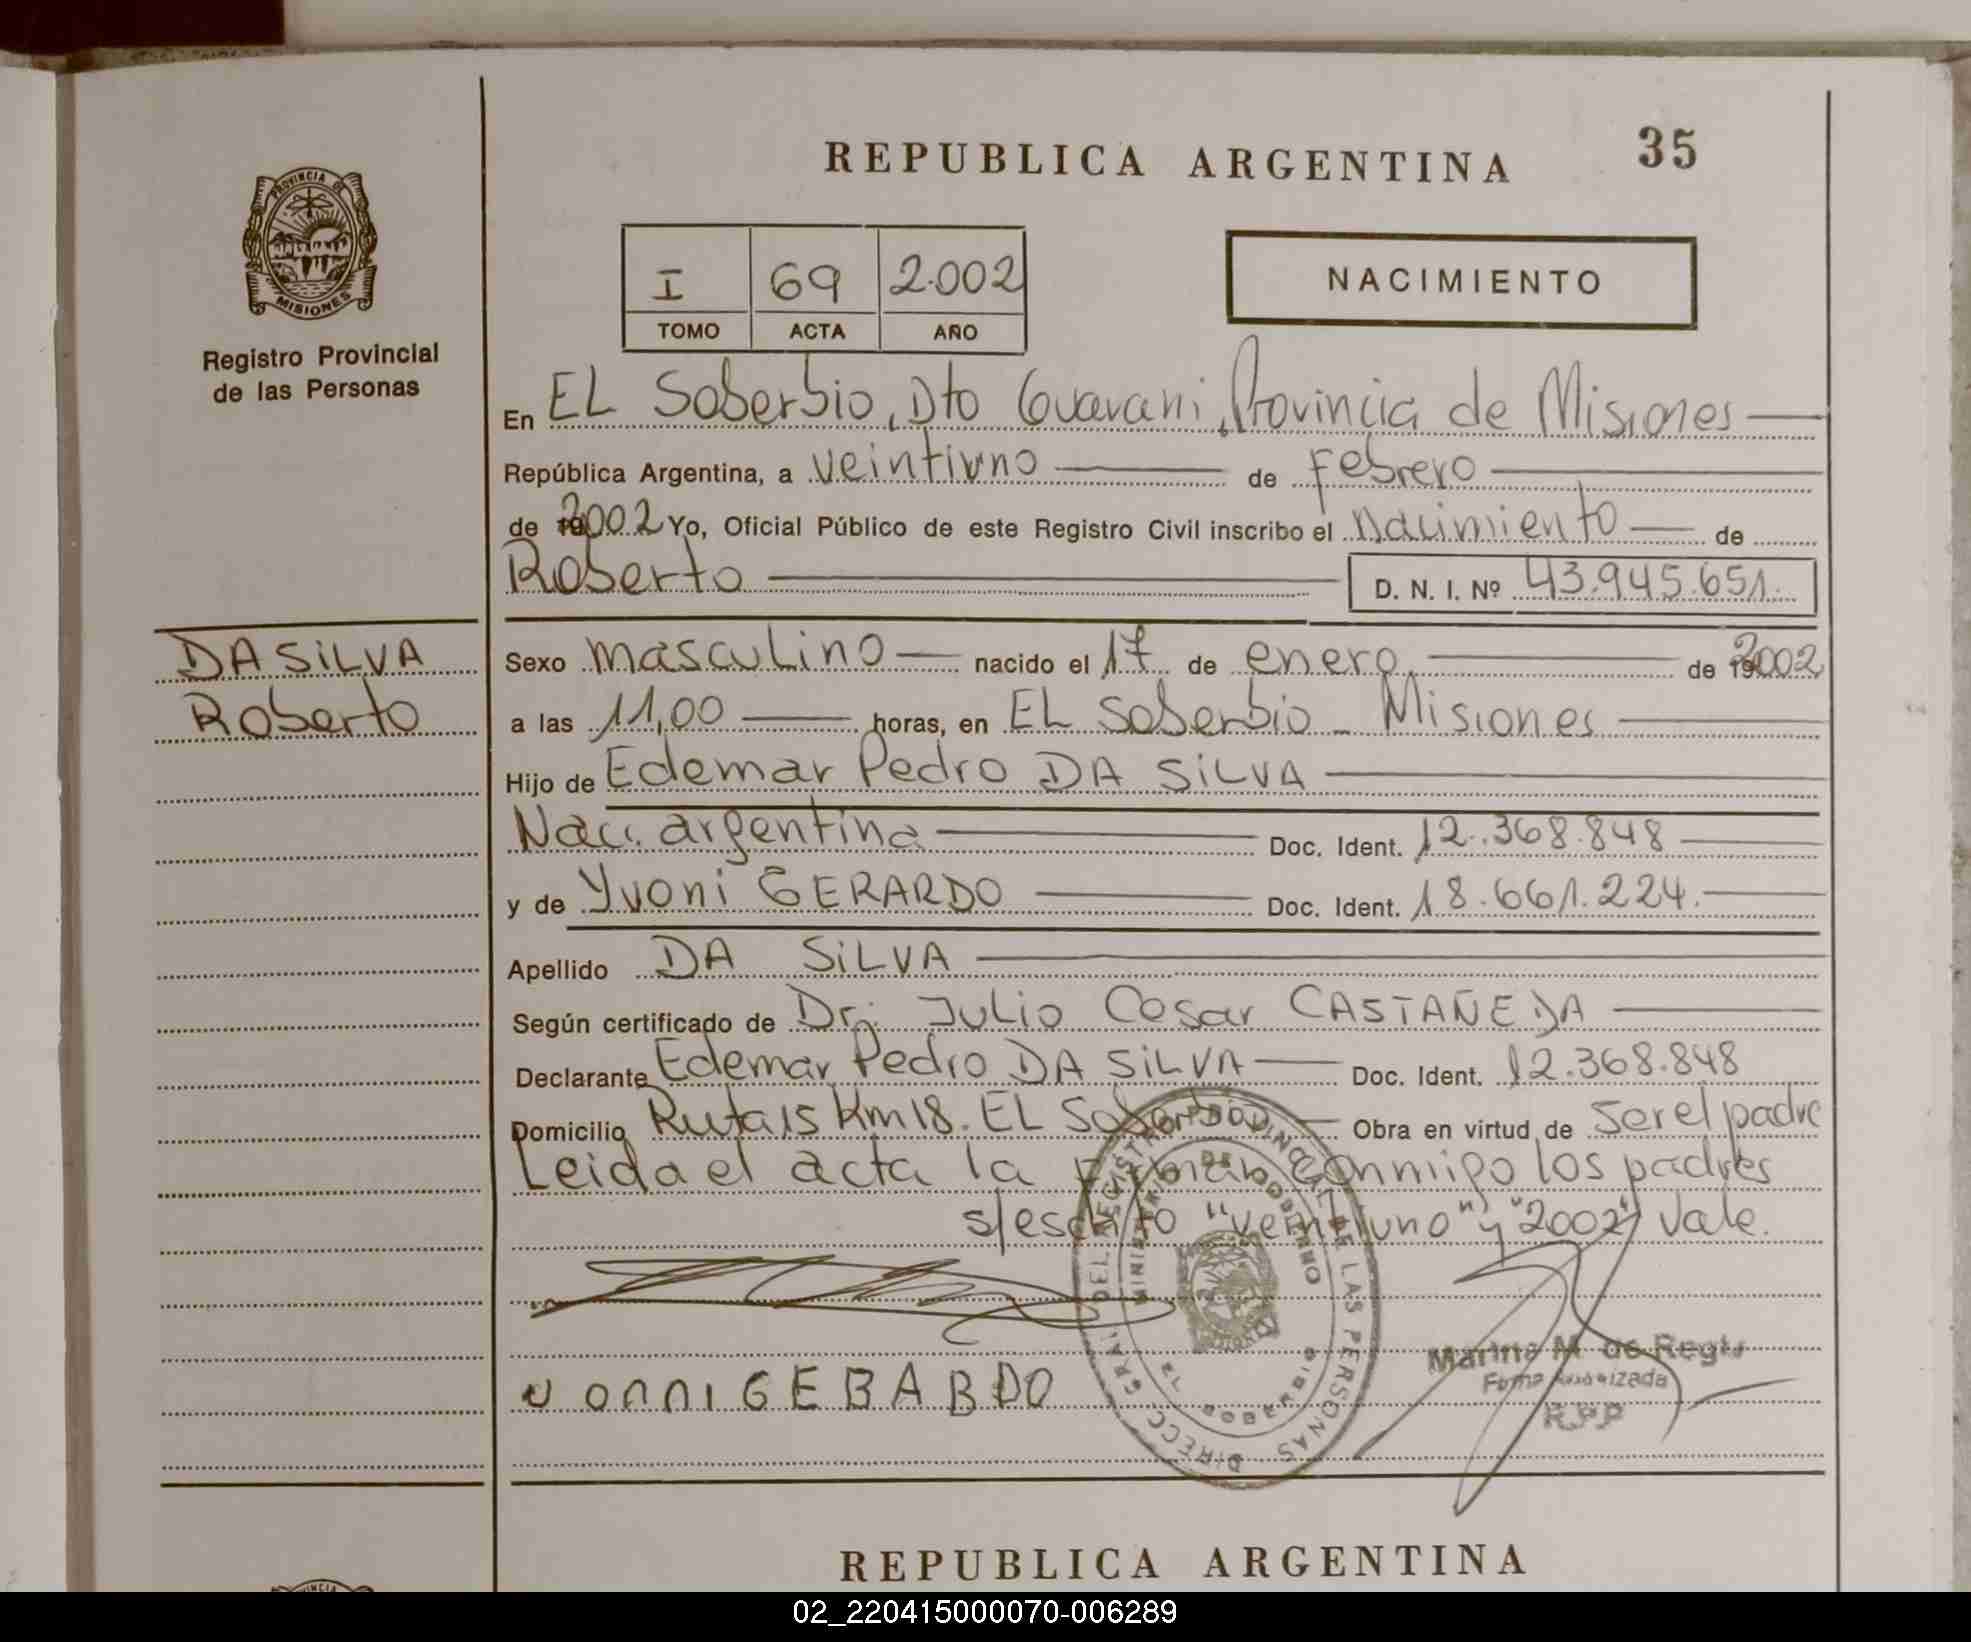 REPUBLICA ARGENTINA
35
PROVINCIA DE
MISIONES
Registro Provincial
de las Personas
I 69 2.002
TOMO ACTA AÑO
NACIMIENTO
En EL Soberbio, Dto Guarani, Provincia de Misiones
República Argentina, a veintiuno de Febrero
de 2002 Yo, Oficial Público de este Registro Civil inscribo el nacimiento de
Roberto D. N. I. Nº 43.945.651.
DA SiLVA
Roberto
Sexo masculino nacido el 17 de enero de 2002
a las 11,00 horas, en EL Soberbio - Misiones
Hijo de Edemar Pedro DA SiLVA
Nac. argentina Doc. Ident. 12.368.848
y de Yvoni GERARDO Doc. Ident. 18.661.224.
Apellido DA SiLVA
Según certificado de Dr. Julio Cesar CASTAÑEDA
Declarante Edemar Pedro DA SiLVA Doc. Ident. 12.368.848
Domicilio Ruta 15 Km 18. EL Soberbio Obra en virtud de ser el padre
Leida el acta la Firman conmigo los padres
s/escrito "veintiuno" y "2002" Vale.
DIRECC. GRAL. DEL REGISTRO PROVINCIAL DE LAS PERSONAS
MINISTERIO DE GOBIERNO
EL SOBERBIO
Marina M. de Regis
Firma Autorizada
R.P.P
U onni GEBABDO
REPUBLICA ARGENTINA
02_220415000070-006289